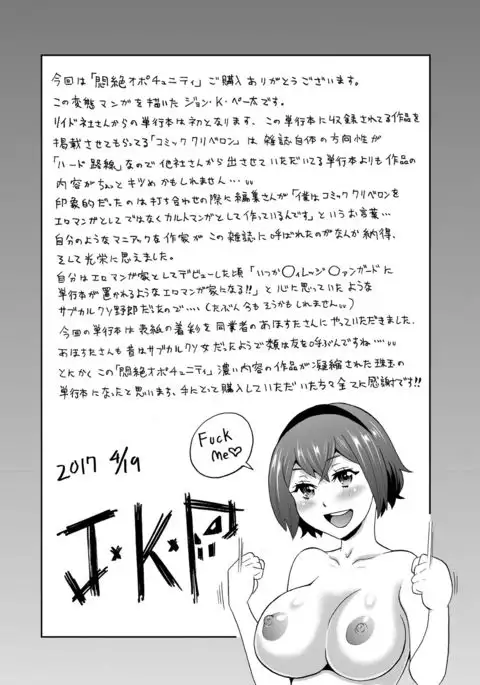 今回は「悶絶オポチュニティ」ご購入ありがとうございます。
この変態マンガを描いたジョン・K・ペー太です。
リイド社さんからの単行本は初となります、この単行本に収録されてる作品を
掲載させてもらってる「コミッククリベロン」は雑誌自体の方向性が
「ハード路線」なので他社さんから出させていただいてる単行本よりも作品の
内容がちょっとキツめかもしれません…
印象的だったのは打ち合わせの際に編集さんが「僕はコミッククリベロンを
エロマンガとしてではなくカルトマンガとして作っているんです」というお言葉…
自分のようなマニアックな作家がこの雑誌に呼ばれたのがなんか納得、
そして光栄に思えました。
自分はエロマンガ家としてデビューした頃「いつか〇ィレッジ〇ァンガードに
単行本が置かれるようなエロマンガ家になる!!」と心に思っていたような
サブカルクソ野郎だったので…(たぶん今もそうかもしれません)
今回の単行本は表紙の着彩を同業者のあほすたさんにやっていただきました、
あほすたさんも昔はサブカルクソ女だったようで類は友を呼ぶんですね…
とにかくこの「悶絶オポチュニティ」濃い内容の作品が凝縮された珠玉の
単行本になったと思います、手にとって購入していただいた方々全てに感謝です!!
Fuck
me♡
2017 4/19
J・K・P